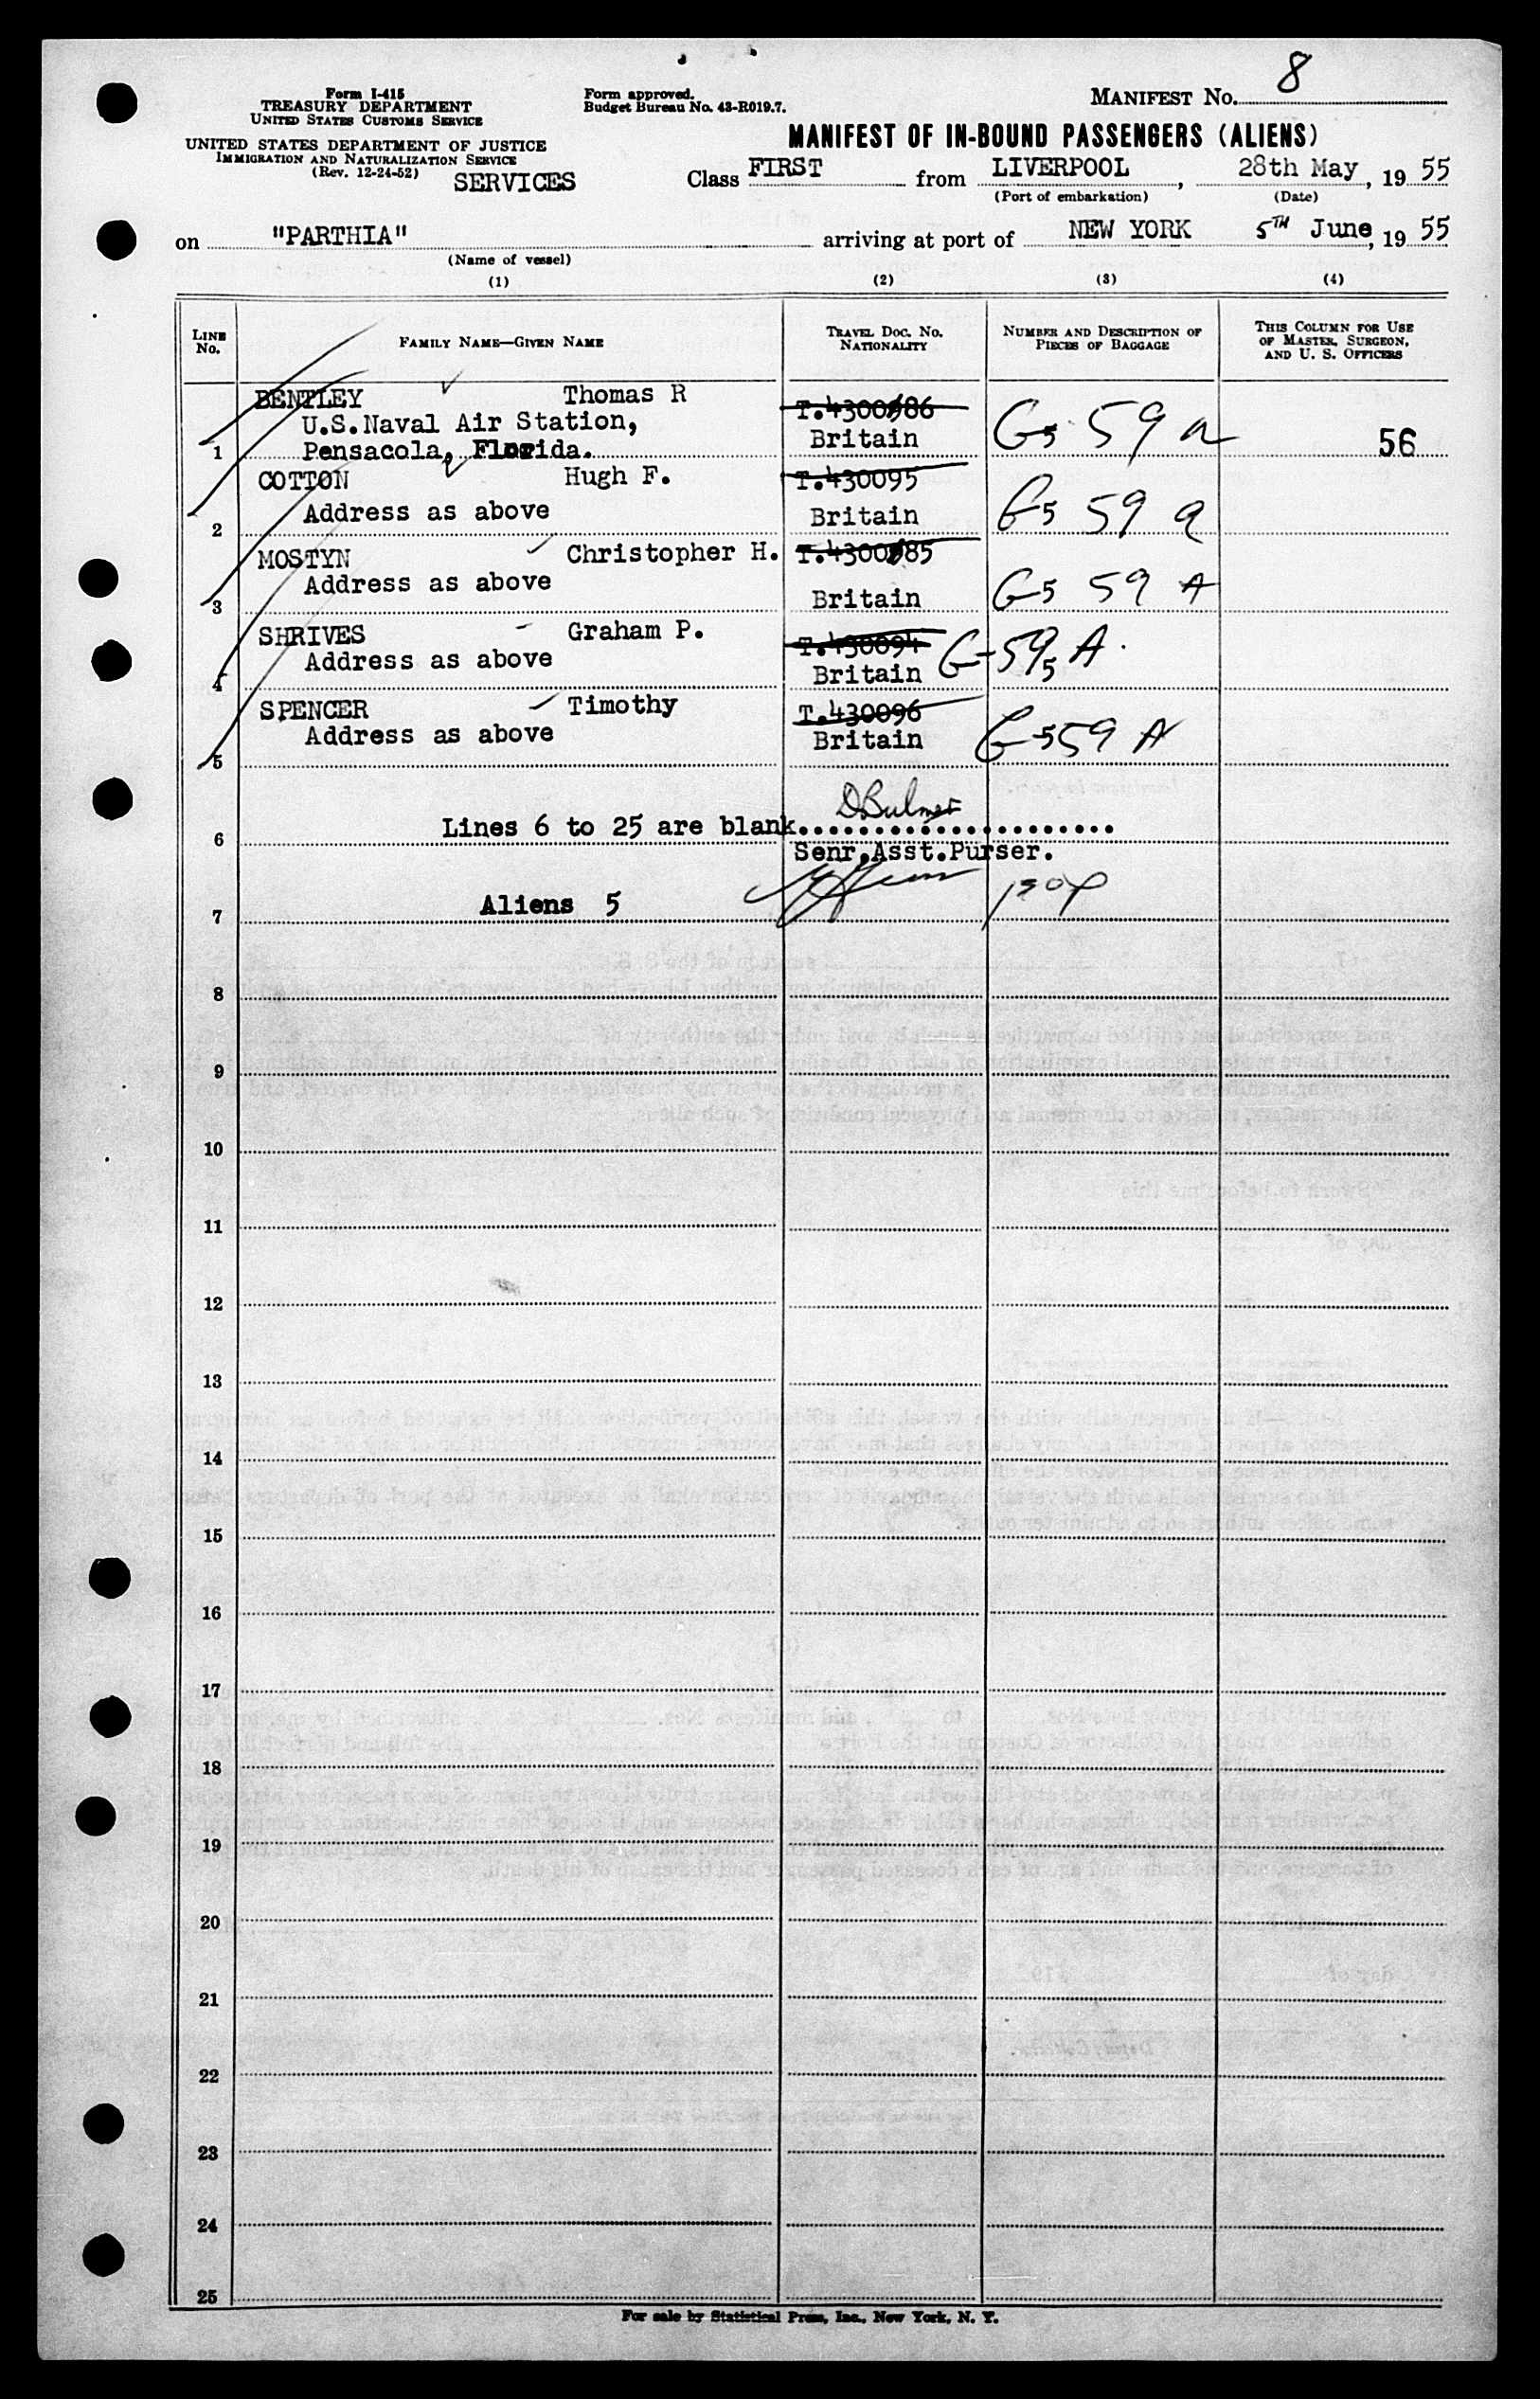 8
Form I-415
TREASURY DEPARTMENT
UNITED STATES CUSTOMS SERVICE
Form approved.
Budget Bureau No. 43-R019.7.
MANIFEST No.
UNITED STATES DEPARTMENT OF JUSTICE
IMMIGRATION AND NATURALIZATION SERVICE
(Rev. 12-24-52)
SERVICES
MANIFEST OF IN-BOUND PASSENGERS (ALIENS)
Class FIRST from LIVERPOOL, 28th May, 19 55
(Port of embarkation) (Date)
on "PARTHIA" arriving at port of NEW YORK 5TH June, 19 55
(Name of vessel)
(1) (2) (3) (4)
LINE No. FAMILY NAME—GIVEN NAME TRAVEL DOC. NO. NATIONALITY NUMBER AND DESCRIPTION OF PIECES OF BAGGAGE THIS COLUMN FOR USE OF MASTER, SURGEON, AND U. S. OFFICERS
BENTLEY Thomas R
U.S.Naval Air Station, Britain G5 59 a 56
1 Pensacola, Florida.
COTTON Hugh F. T.430095
Address as above Britain G5 59 a
2
MOSTYN Christopher H.
Address as above Britain G5 59 A
3
SHRIVES Graham P. T.430094
Address as above Britain G-59 5 A.
4
SPENCER Timothy T.430096
Address as above Britain G-559 A
5
DBulmer
6 Lines 6 to 25 are blank
Senr.Asst.Purser.
7 Aliens 5
8
9
10
11
12
13
14
15
16
17
18
19
20
21
22
23
24
25
For sale by Statistical Press, Inc., New York, N. Y.